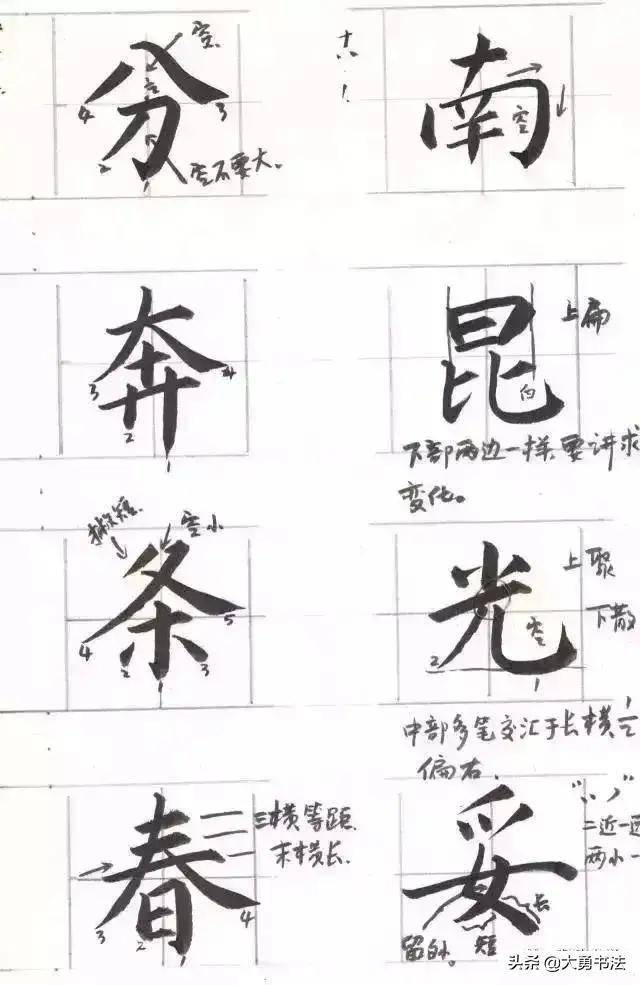 分 空 空 4 3 2 1 空不要大。
南 空
奔 3 4 2 1
昆 上扁 白
下部两边一样,要讲求
变化。
条 空小 4 5 2 3 1
光 上聚
下散
空 2 1
中部多笔交汇于长横1/2
偏右.
春 三横等距.
末横长.
3 2 4 1
妥
二近一远
两小一
长
留白。 短
头条 @大勇书法